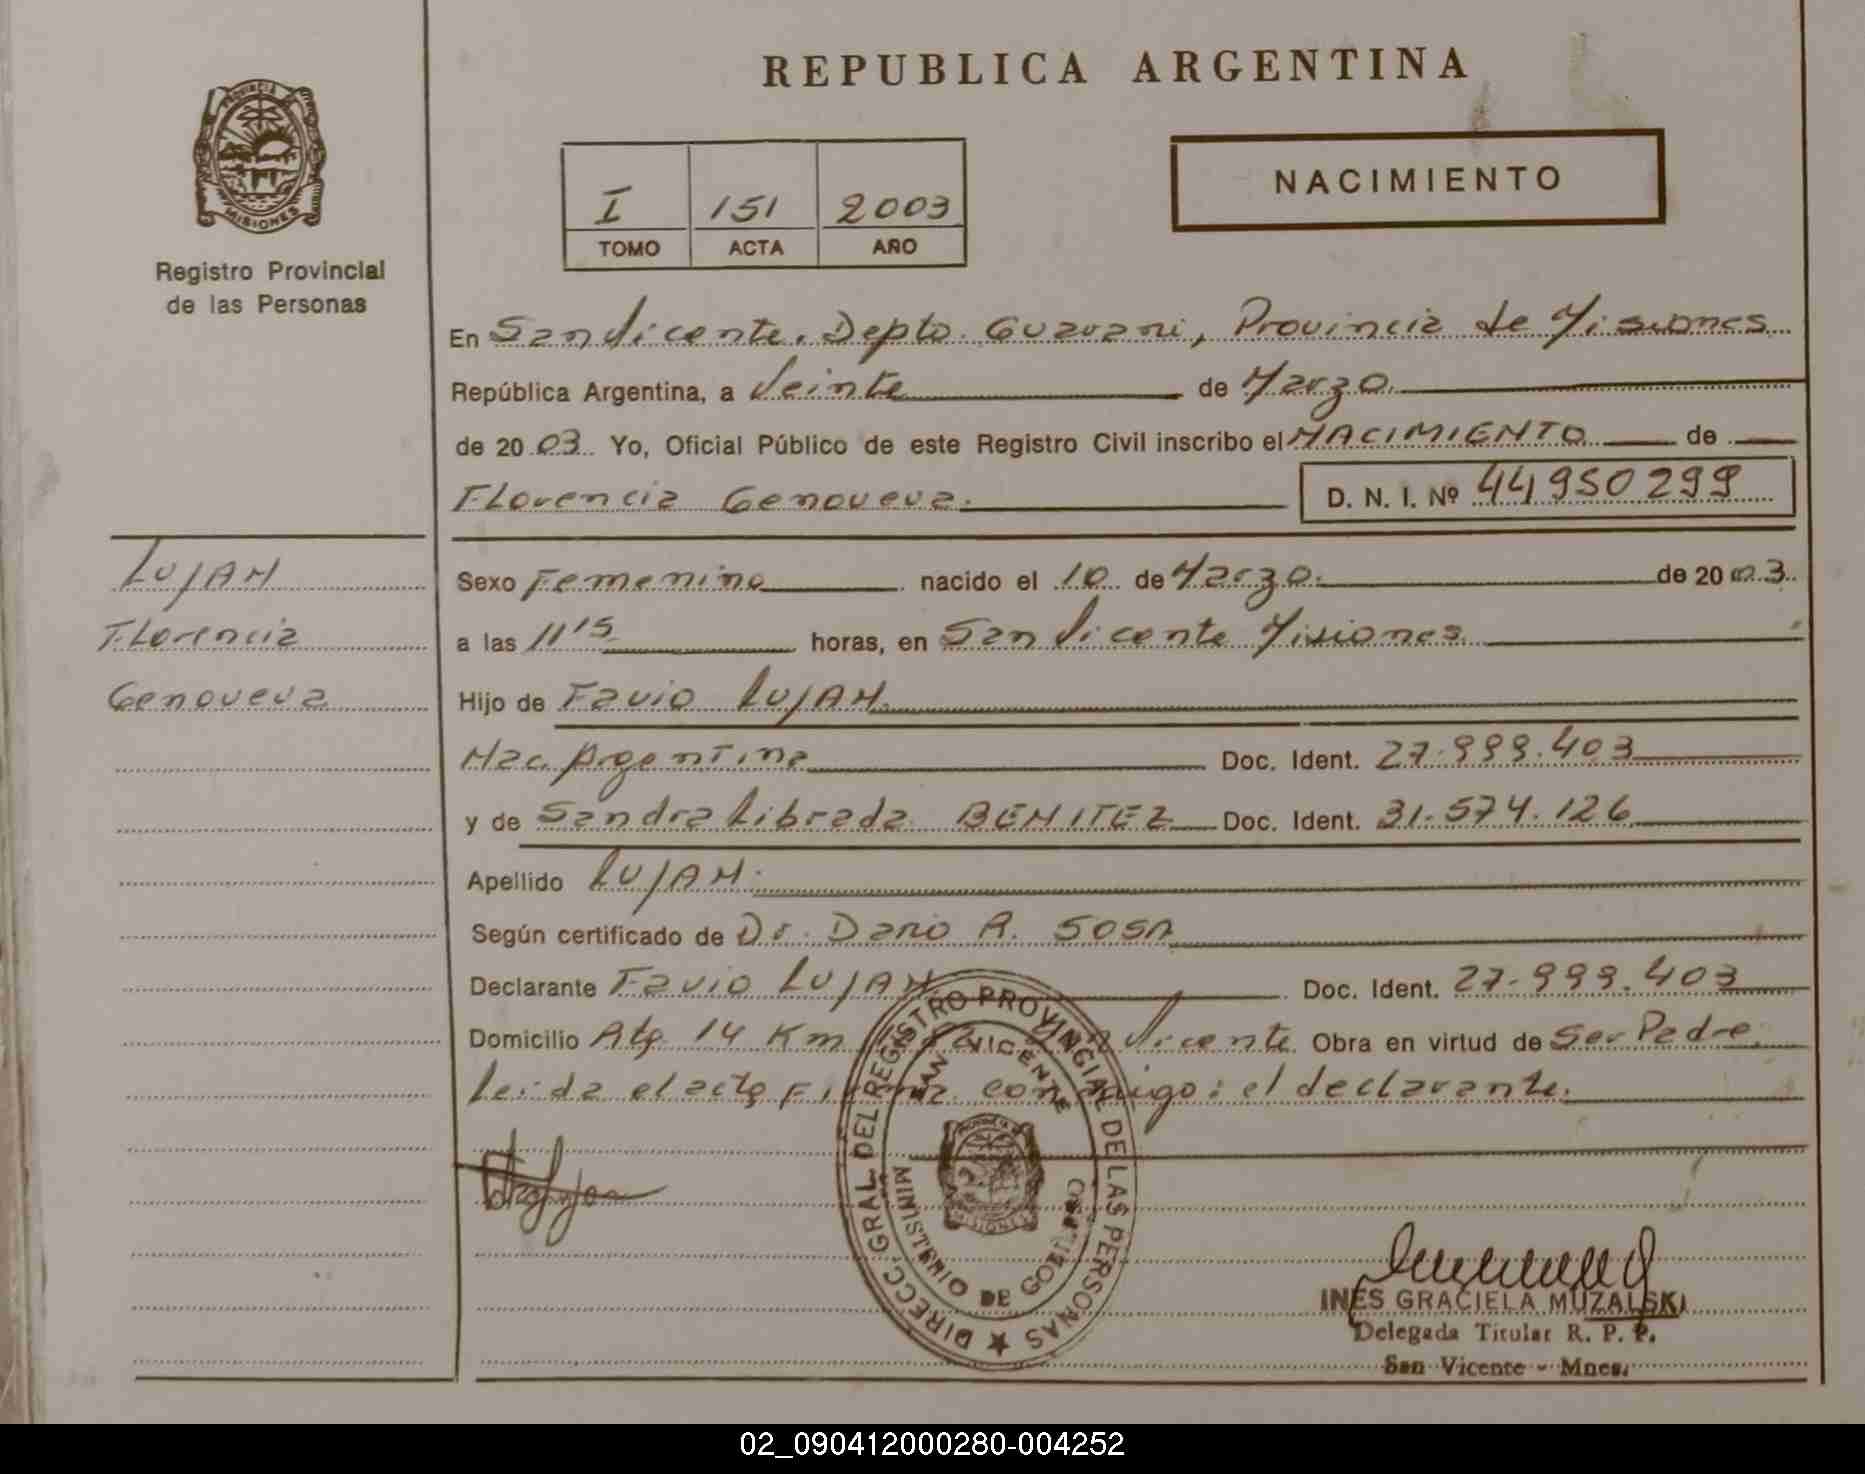 REPUBLICA ARGENTINA
PROVINCIA DE
MISIONES
Registro Provincial
de las Personas
I 151 2003
TOMO ACTA AÑO
NACIMIENTO
En San Vicente, Depto. Guarani, Provincia de Misiones
República Argentina, a Veinte de Marzo
de 2003 Yo, Oficial Público de este Registro Civil inscribo el NACIMIENTO de
Florencia Genoveva. D. N. I. Nº 44950299
LUJAN
Florencia
Genoveva
Sexo Femenino nacido el 10 de Marzo de 2003
a las 11'15 horas, en San Vicente Misiones
Hijo de Favio LUJAN
Nac. Argentina Doc. Ident. 27.999.403
y de Sandra Librada BENITEZ Doc. Ident. 31.574.126
Apellido LUJAN
Según certificado de Dr. Dario A. SOSA
Declarante Favio LUJAN Doc. Ident. 27.999.403
Domicilio 14 Km Vicente Obra en virtud de Ser Padre
Leida el acta Firma conmigo: el declarante.
DIRECC. GRAL. DEL REGISTRO PROVINCIAL DE LAS PERSONAS
SAN VICENTE
MINISTERIO DE GOBIERNO
MISIONES
INES GRACIELA MUZALSKI
Delegada Titular R. P. P.
San Vicente - Mnes.
02_090412000280-004252